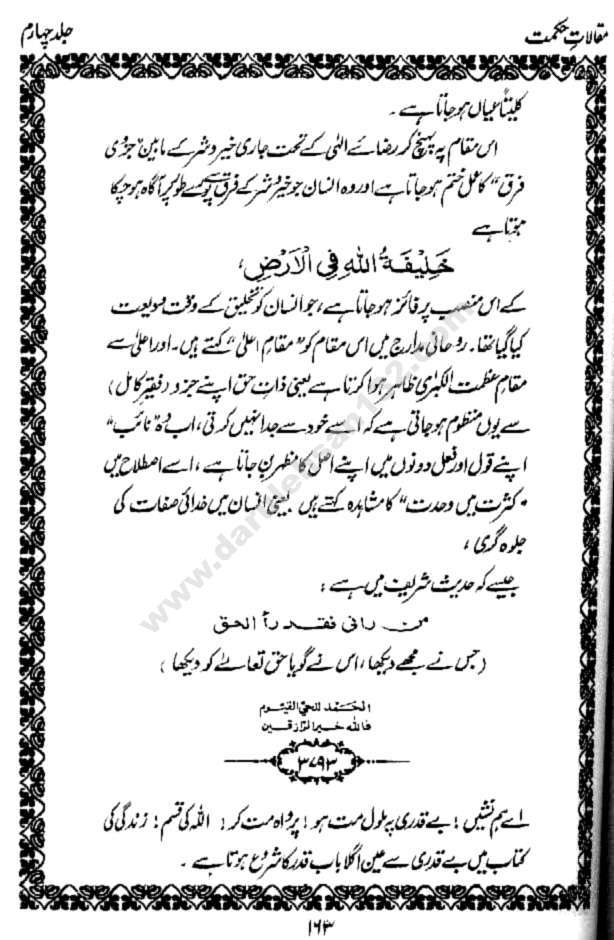 مقالاتِ حکمت
جلد چہارم
کلیتاً عیاں ہو جاتا ہے ۔
اس مقام پہ پہنچ کر رضائے الٰہی کے تحت جاری خیر و شر کے مابین "جزوی
فرق" کا عمل ختم ہو جاتا ہے اور وہ انسان جو خیر و شر کے فرق سے پورے طور پر آگاہ ہو چکا
ہوتا ہے
خَلِیْفَۃُ اللہِ فِی الْاَرْضِ،
کے اس منصب پر فائز ہو جاتا ہے، جو انسان کو تخلیق کے وقت ودیعت
کیا گیا تھا ۔ روحانی مدارج میں اس مقام کو "مقامِ اعلیٰ" کہتے ہیں ۔ اور اعلیٰ سے
مقام عظمت الکبریٰ ظاہر ہوا کرتا ہے یعنی ذاتِ حق اپنے جزو (فقیرِ کامل)
سے یوں منظوم ہو جاتی ہے کہ اسے خود سے جدا نہیں کرتی، اب وہ "نائب"
اپنے قول اور فعل دونوں میں اپنے اصل کا مظہر بن جاتا ہے ، اسے اصطلاح میں
"کثرت میں وحدت" کا مشاہدہ کہتے ہیں یعنی انسان میں خدائی صفات کی
جلوہ گری ،
جیسے کہ حدیث شریف میں ہے :
من رانی فقد رأ الحق
(جس نے مجھے دیکھا، اس نے گویا حق تعالےٰ کو دیکھا)
الحمد للحی القیوم
فاللہ خیر الرازقین
۳۷۹۳
اے ہم نشیں! بے قدری پہ ملول مت ہو! پرواہ مت کر! اللہ کی قسم! زندگی کی
کتاب میں بے قدری سے عین اگلا باب قدر کا شروع ہوتا ہے ۔
۱۶۳
www.darulehsan1-2.com